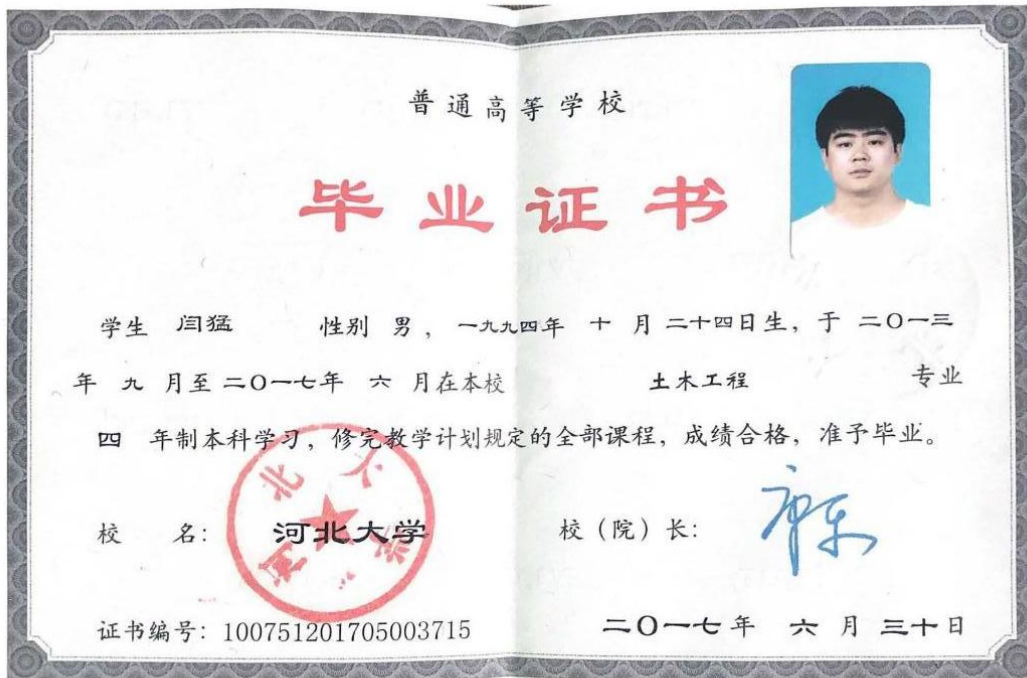 普通高等学校
毕业证书
学生 闫猛 性别 男，一九九四年 十 月 二十四日生，于 二〇一三
年 九 月至 二〇一七年 六 月在本校 土木工程 专业
四 年制本科学习，修完教学计划规定的全部课程，成绩合格，准予毕业。
校 名： 河北大学
河北大学
校（院）长：
证书编号：100751201705003715
二〇一七年 六 月 三十日